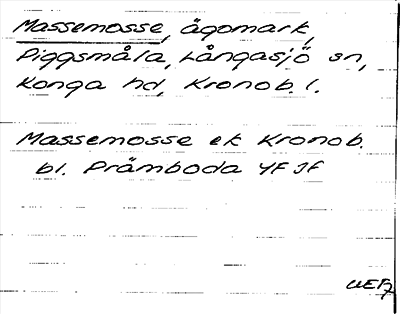 Massemosse, ägomark,
Piggsmåla, Långasjö sn,
Konga hd, Kronob. l.
Massemosse ek Kronob.
bl. Pråmboda YF JF